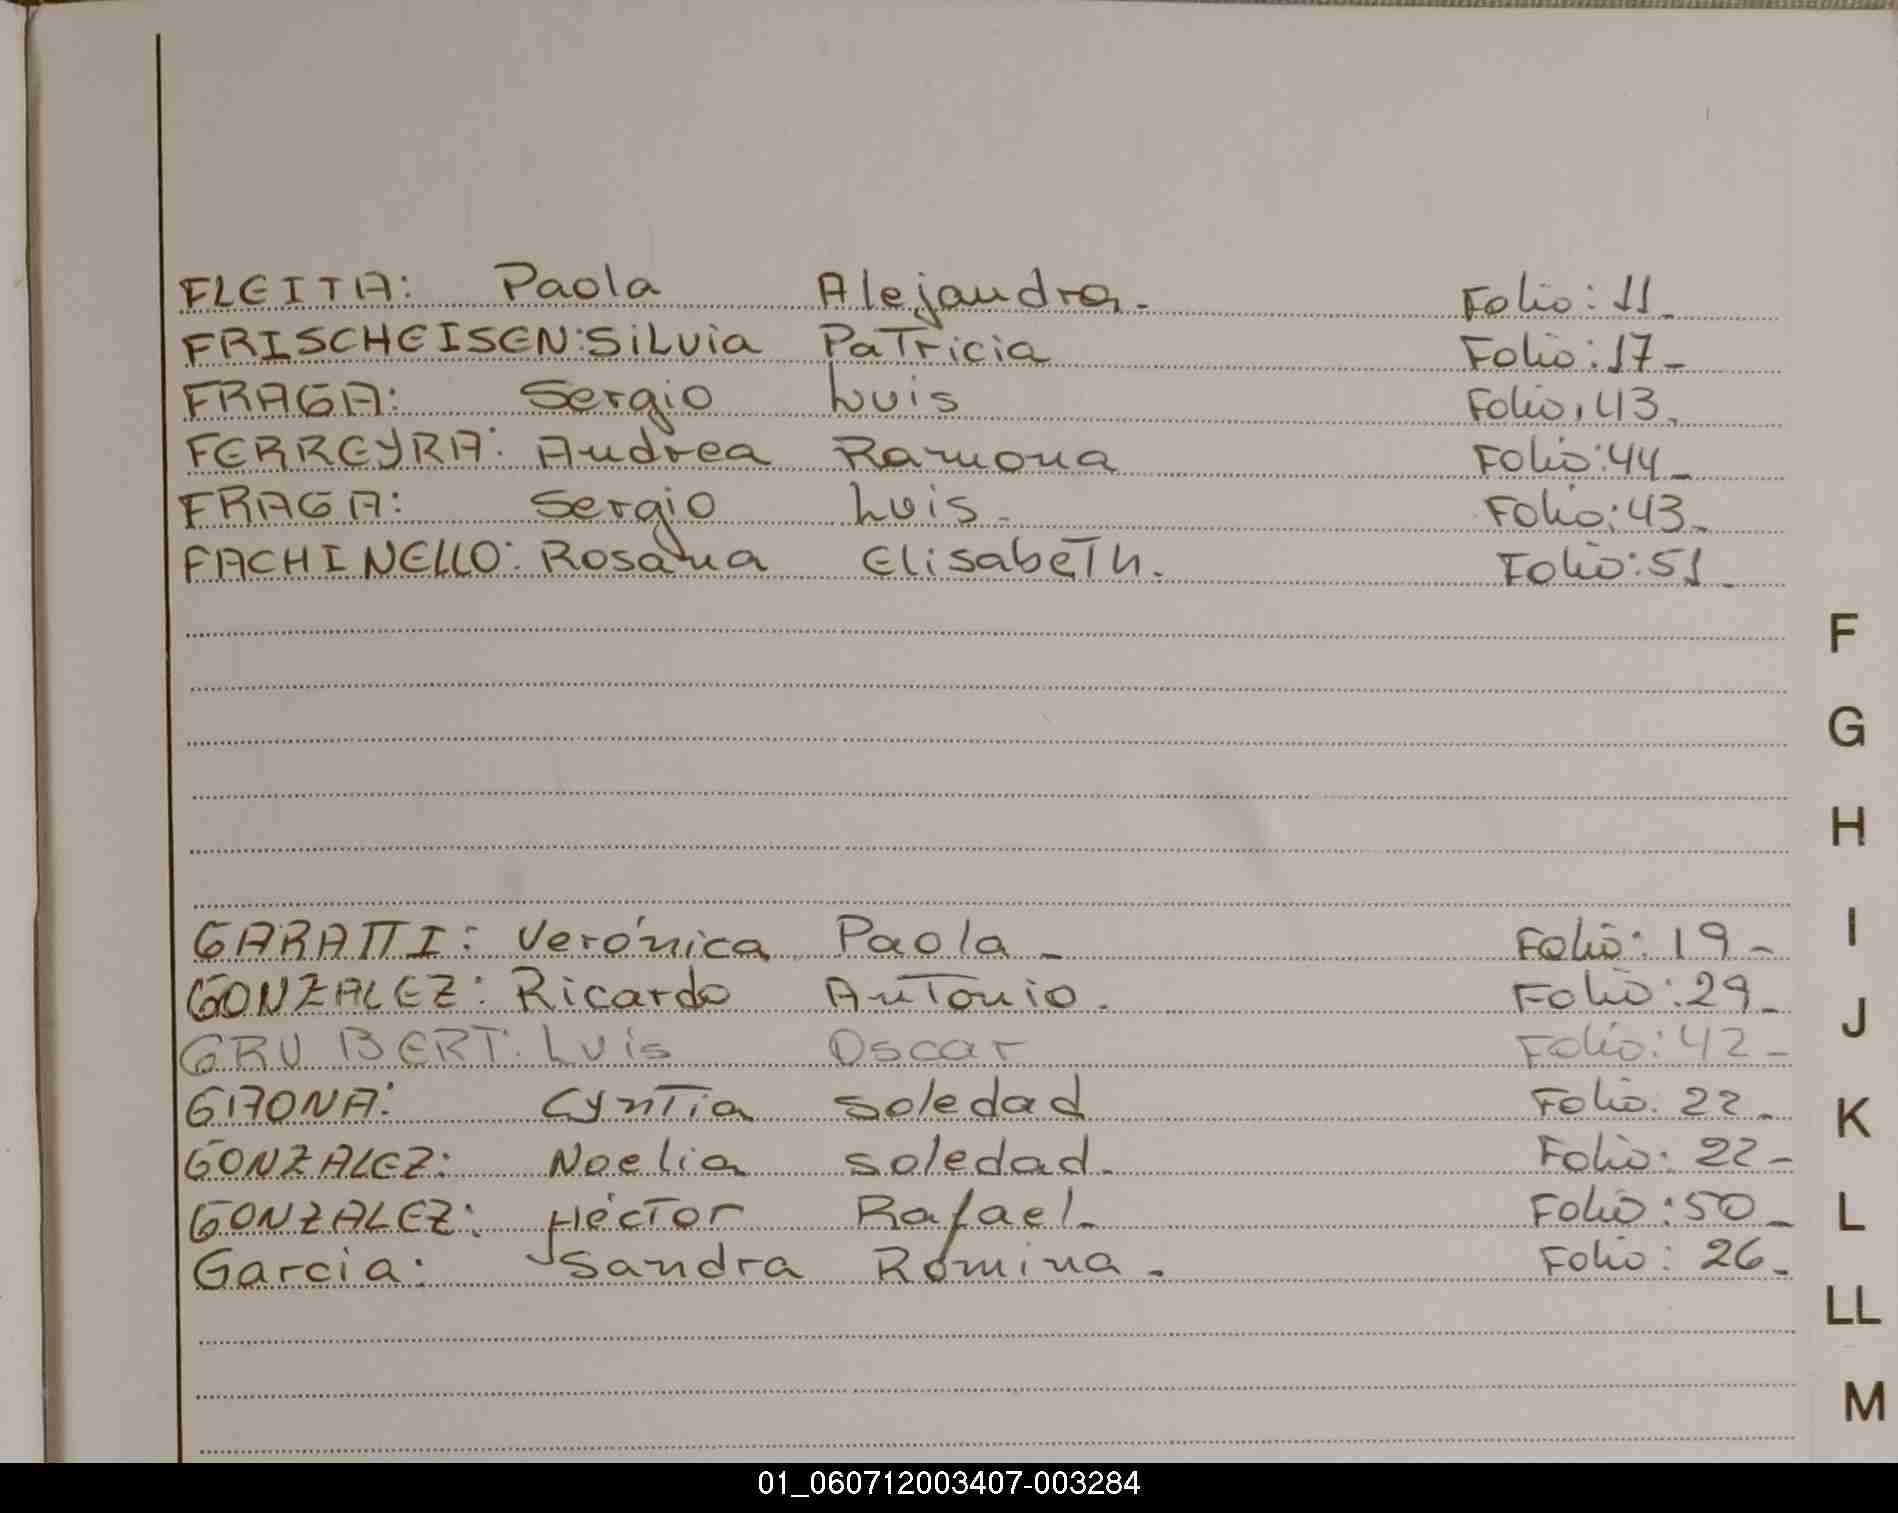 FLEITA: Paola Alejandra. Folio: 11_
FRISCHEISEN: Silvia Patricia Folio: 17_
FRAGA: Sergio Luis Folio, 43.
FERREYRA: Andrea Ramona Folio: 44_
FRAGA: Sergio Luis. Folio: 43_
FACHINELLO: Rosana Elisabeth. Folio: 51_
F
G
H
I
GARATTI: Verónica Paola _ Folio: 19_
GONZALEZ: Ricardo Antonio. Folio: 29_
J
GRUBERT: Luis Oscar Folio: 42_
GAONA: Cyntia Soledad Folio. 22_
K
GONZALEZ: Noelia Soledad. Folio: 22_
GONZALEZ: Héctor Rafael_ Folio: 50_
L
Garcia: Sandra Romina. Folio: 26_
LL
M
01_060712003407-003284